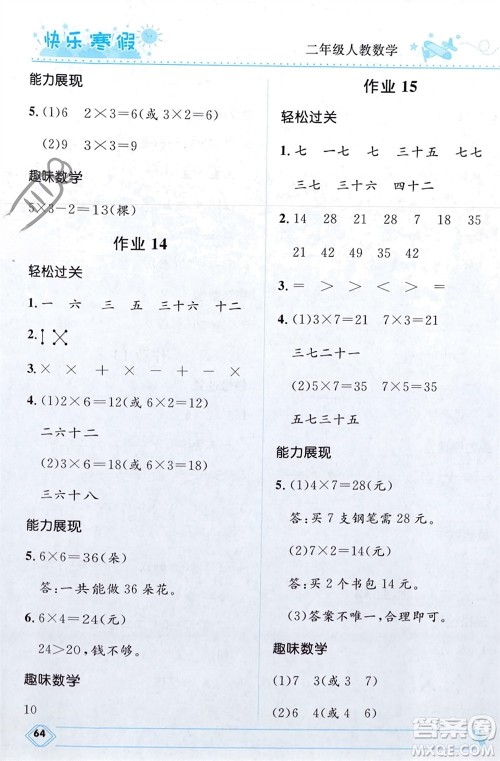 快乐寒假
二年级人教数学
能力展现
5.(1)6 2×3=6(或 3×2=6)
(2)9 3×3=9
趣味数学
5×3-2=13(棵)
作业 14
轻松过关
1.一 六 三 五 三十六 十二
2.
3.× × + - × ×
4.(1)2×6=12 6×2=12
二六十二
(2)3×6=18 6×3=18
三六十八
能力展现
5.6×6=36(朵)
答:一共能做 36 朵花。
6.6×4=24(元)
24>20,钱不够。
趣味数学
10
64
作业 15
轻松过关
1.七 一七 七 三十五 七七
三七 三七 四十二
2.14 28 21 7 28 35
35 42 42 49 49
3.> < < = < =
4.(1)3×7=21 7×3=21
三七二十一
(2)5×7=35 7×5=35
五七三十五
能力展现
5.(1)4×7=28(元)
答:买 7 支钢笔需 28 元。
(2)7×2=14(元)
答:买 2 个书包 14 元。
(3)答案不唯一,合理即可。
趣味数学
(1)7 3(或 3 7)
(2)5 4(或 4 5)
答案圈
MXQE.COM